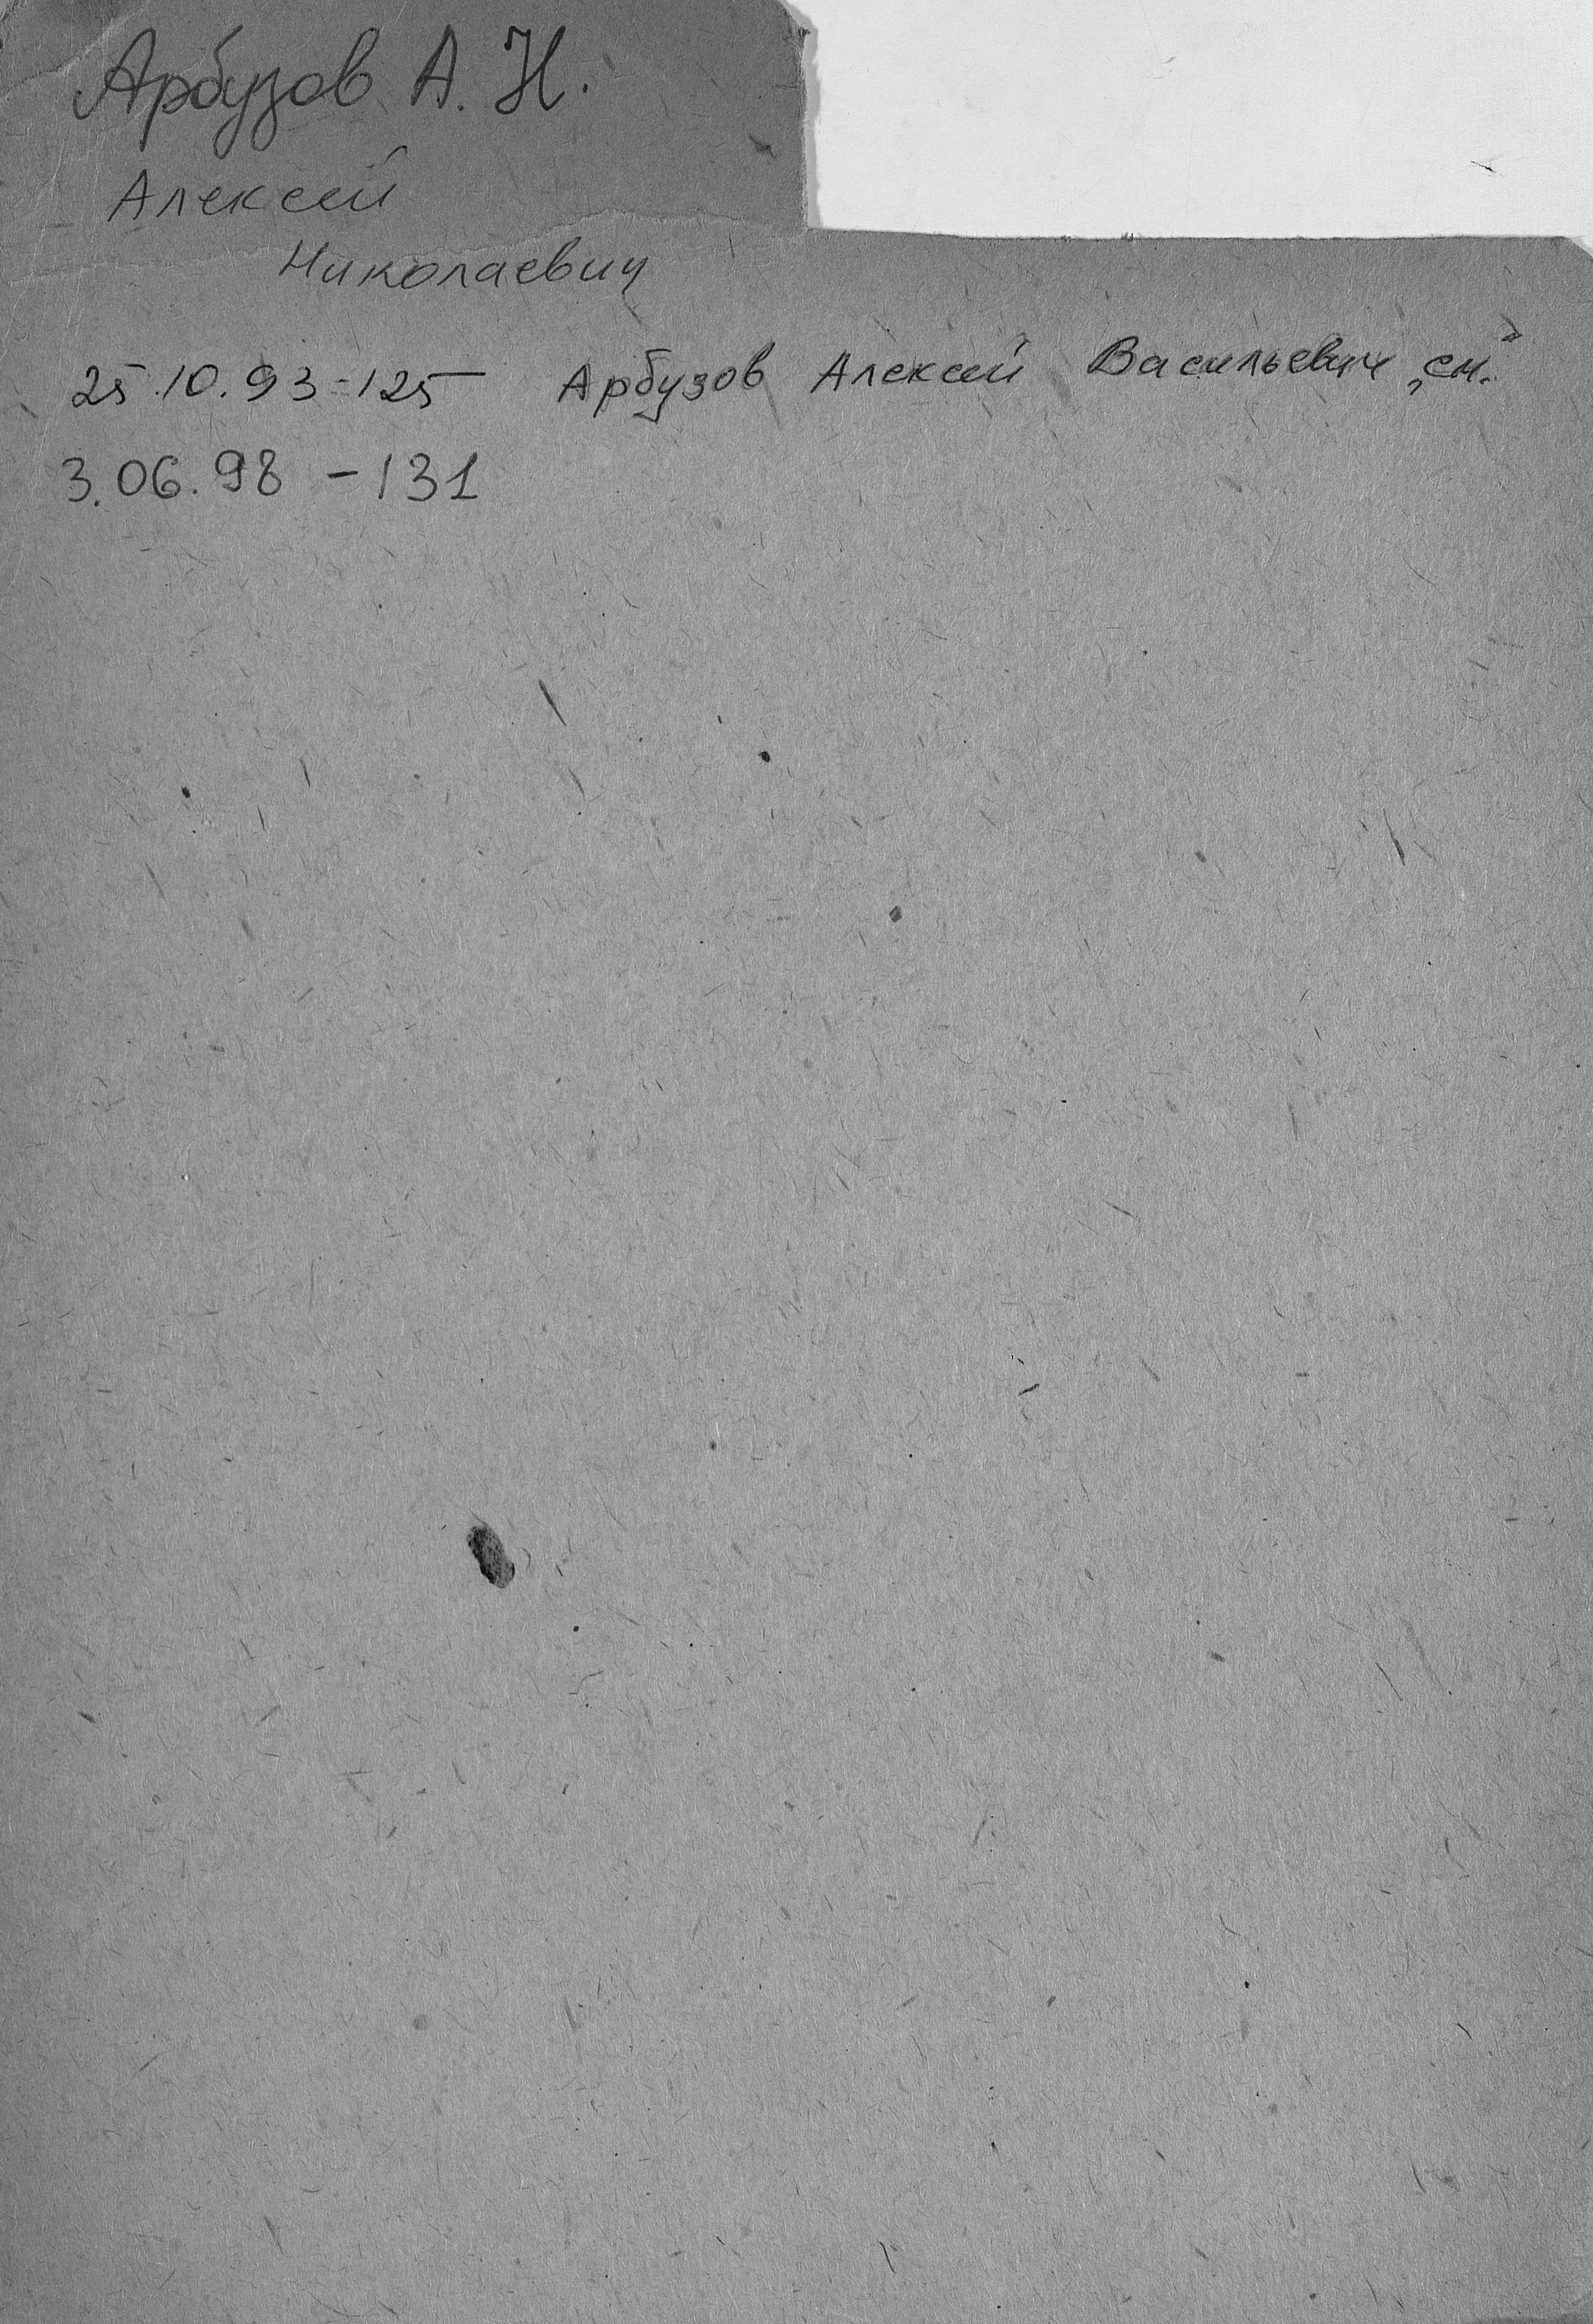 Арбузов А. Н.
Алексей
Николаевич
25.10.93-125 Арбузов Алексей Васильевич „см."
3.06.98 - 131